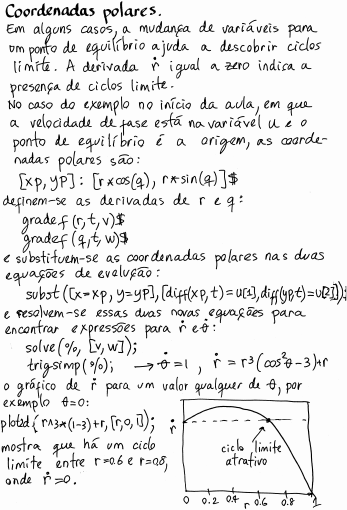 Coordenadas polares.
Em alguns casos, a mudança de variáveis para
um ponto de equilíbrio ajuda a descobrir ciclos
limite. A derivada ṙ igual a zero indica a
presença de ciclos limite.
No caso do exemplo no início da aula, em que
a velocidade de fase está na variável u e o
ponto de equilíbrio é a origem, as coorde-
nadas polares são:
[xp,yp]: [r*cos(q), r*sin(q)]$
definem-se as derivadas de r e q:
gradef(r,t,v)$
gradef(q,t,w)$
e substituem-se as coordenadas polares nas duas
equações de evolução:
subst([x=xp, y=yp],[diff(xp,t)=u[1],diff(yp,t)=u[2]]);
e resolvem-se essas duas novas equações para
encontrar expressões para ṙ e θ̇:
solve(%, [v,w]);
trigsimp(%); → θ̇=1, ṙ = r³(cos²θ-3)+r
o gráfico de ṙ para um valor qualquer de θ, por
exemplo θ=0:
plot2d(r^3*(1-3)+r,[r,0,1]);
mostra que há um ciclo
limite entre r=0.6 e r=0.8,
onde ṙ=0.
ṙ
ciclo limite
atrativo
0 0.2 0.4 0.6 0.8 1
r